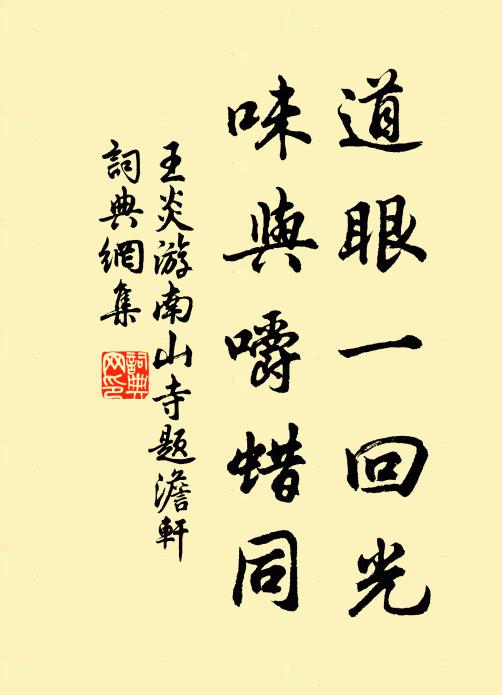 道眼一回光
味與嚼蜡同
王炎游南山寺題澹軒
詞典網集
詞典
网印